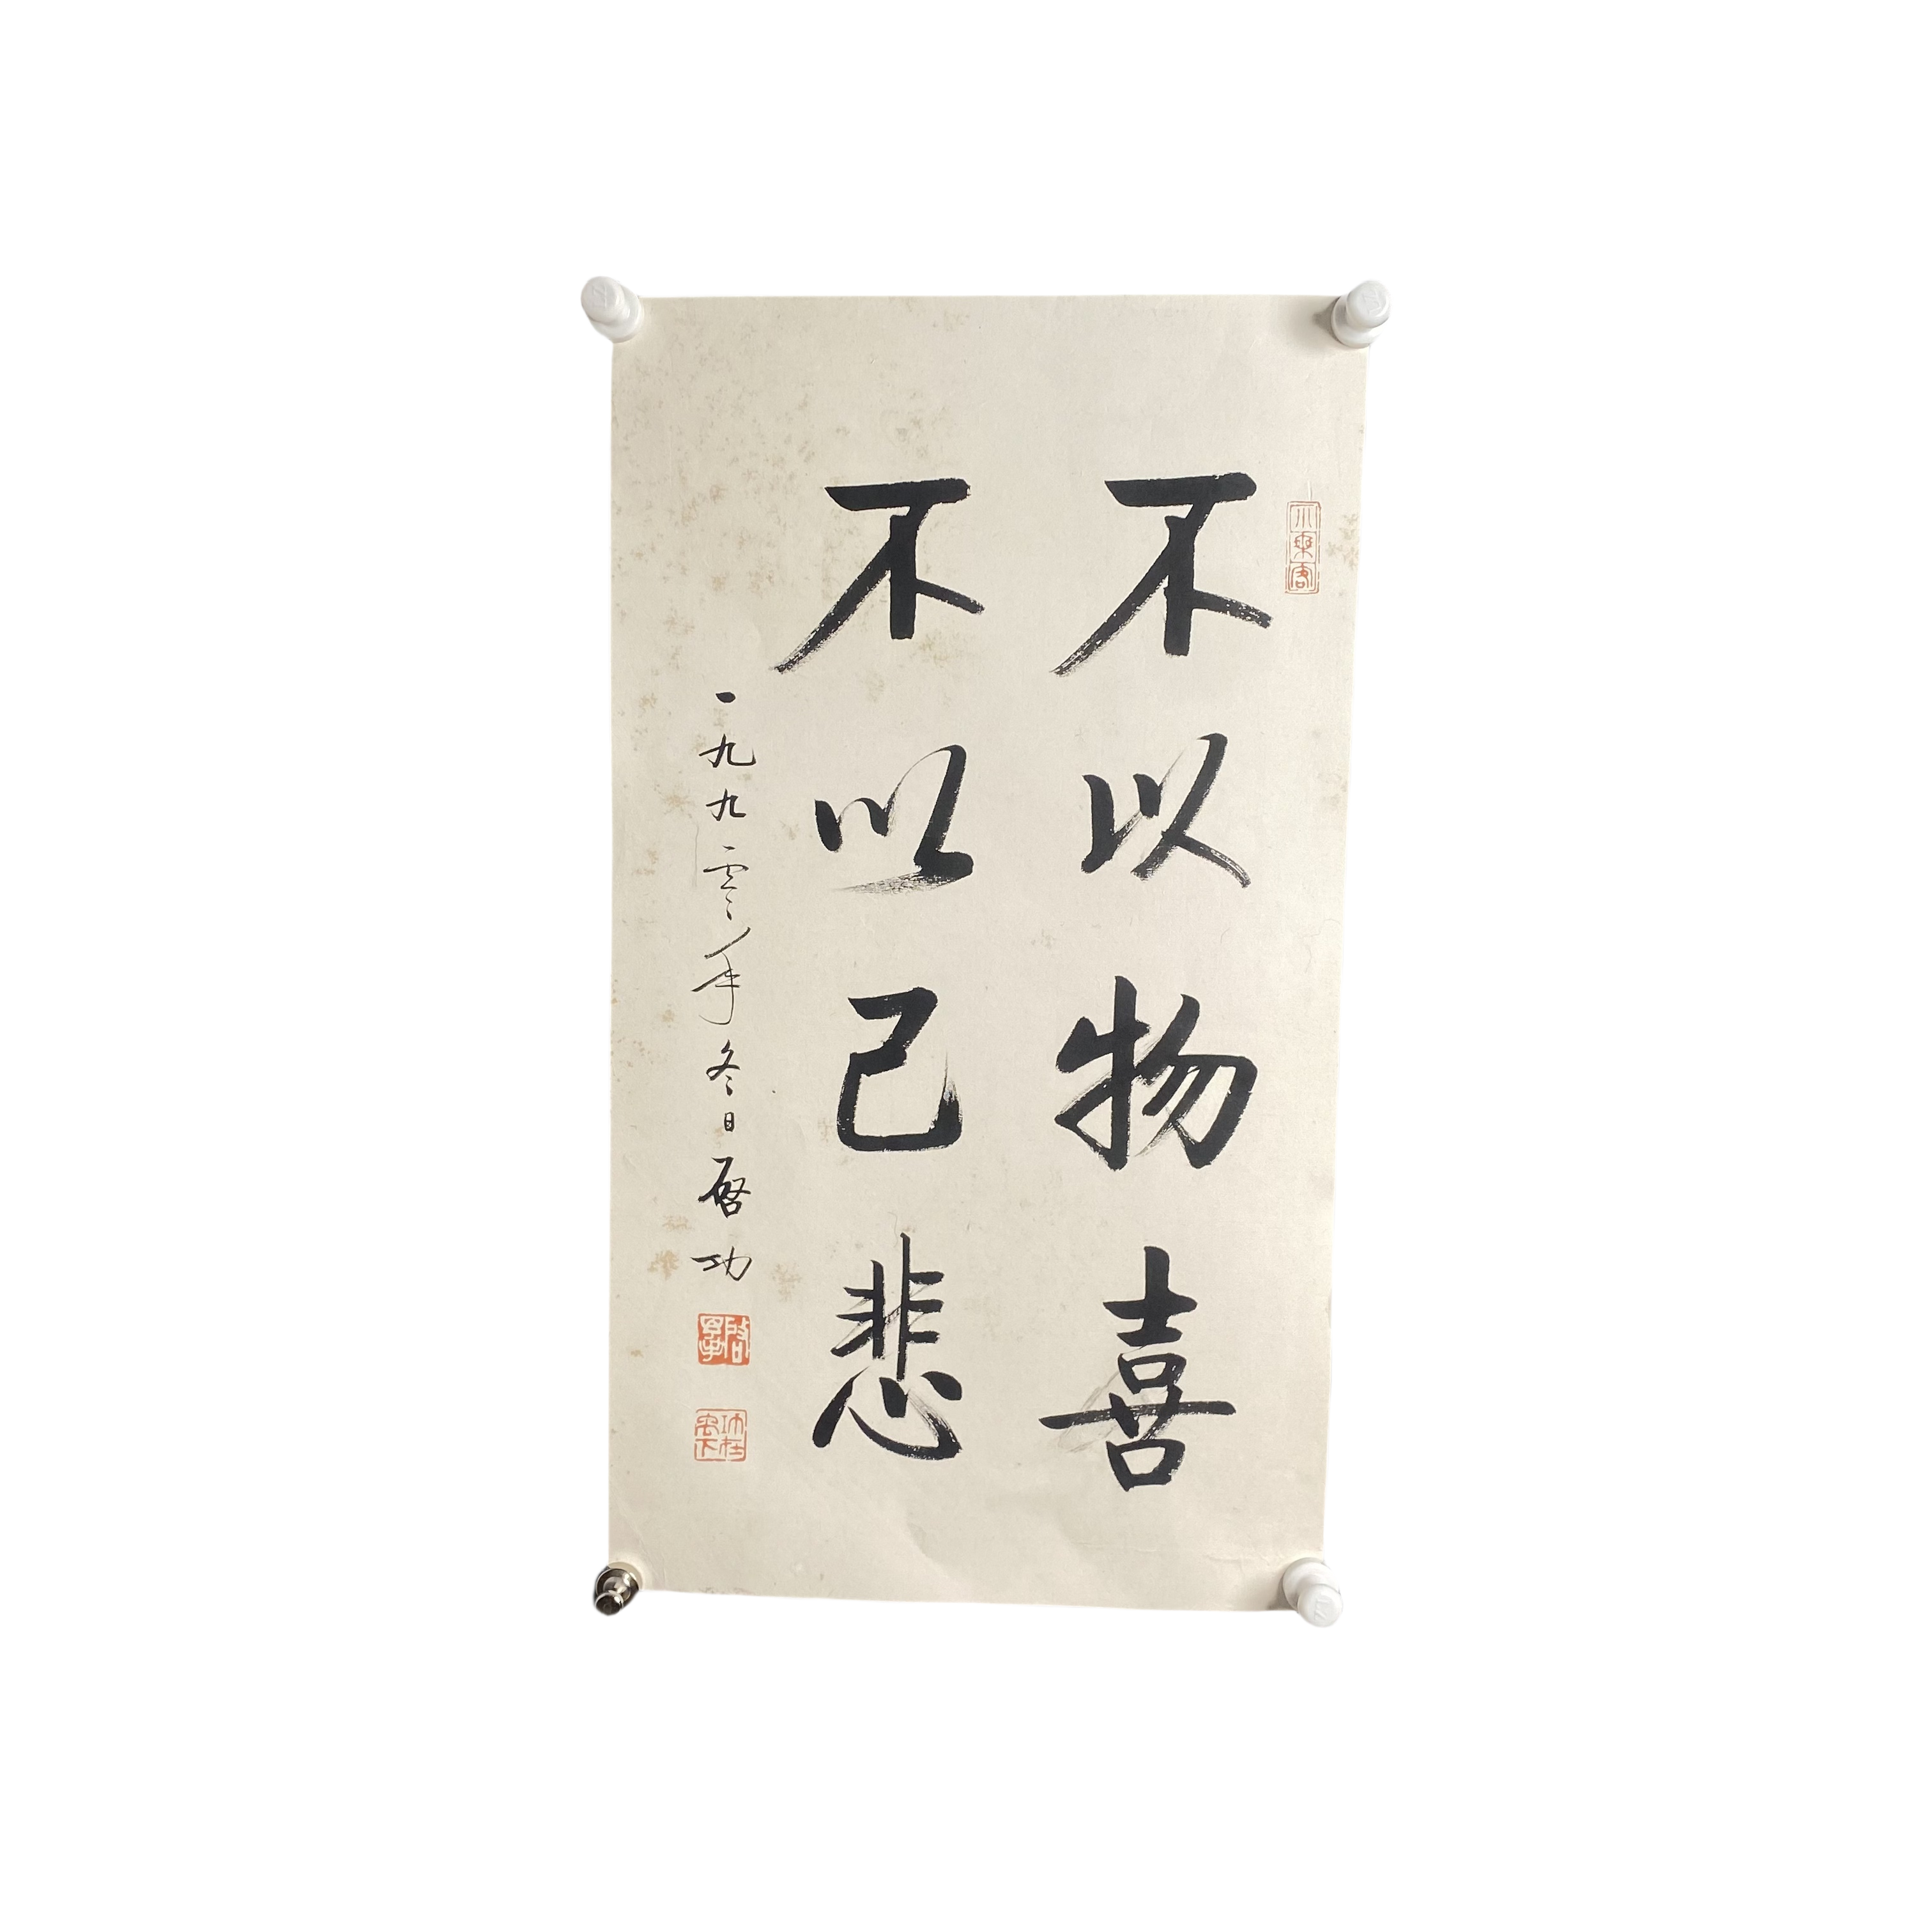 不以物喜
不以己悲
一九九零年冬日启功